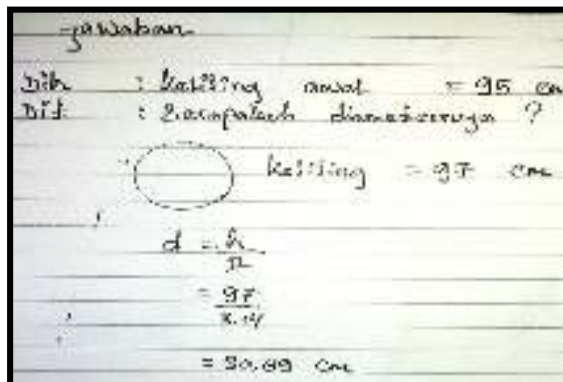 Jawaban
Dik : keliling awal = 95 cm
Dit : Berapakah diameternya ?
keliling = 97 cm
d = k
π
= 97
3.14
= 30.89 cm